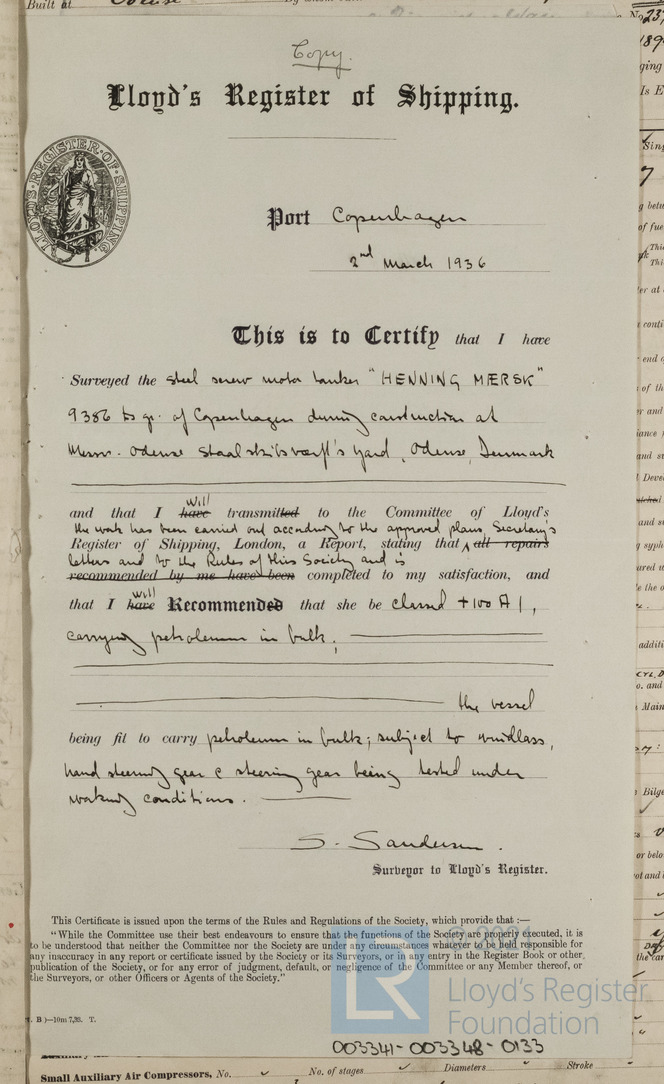 Built at
Copy.
Lloyd's Register of Shipping.
LLOYD'S REGISTER OF SHIPPING
Port Copenhagen
2nd March 1936
This is to Certify that I have
Surveyed the steel screw motor tanker "HENNING MÆRSK"
9386 ts gr. of Copenhagen during construction at
Messrs. Odense Staalskibsværft's yard, Odense, Denmark
will
and that I have transmitted to the Committee of Lloyd's
the work has been carried out according to the approved plans, Secretary's
Register of Shipping, London, a Report, stating that all repairs
letters and to the Rules of this Society and is
recommended by me have been completed to my satisfaction, and
will
that I have Recommended that she be classed +100 A1,
carrying petroleum in bulk,
the vessel
being fit to carry petroleum in bulk; subject to windlass,
hand steering gear & steering gear being tested under
working conditions.
S. Sanderson.
Surveyor to Lloyd's Register.
This Certificate is issued upon the terms of the Rules and Regulations of the Society, which provide that :—
"While the Committee use their best endeavours to ensure that the functions of the Society are properly executed, it is
to be understood that neither the Committee nor the Society are under any circumstances whatever to be held responsible for
any inaccuracy in any report or certificate issued by the Society or its Surveyors, or in any entry in the Register Book or other
publication of the Society, or for any error of judgment, default, or negligence of the Committee or any Member thereof, or
the Surveyors, or other Officers or Agents of the Society."
© 2021
LR
Lloyd's Register
Foundation
B)—10m 7,33. T.
003341-003348-0133
Small Auxiliary Air Compressors, No. No. of stages Diameters Stroke